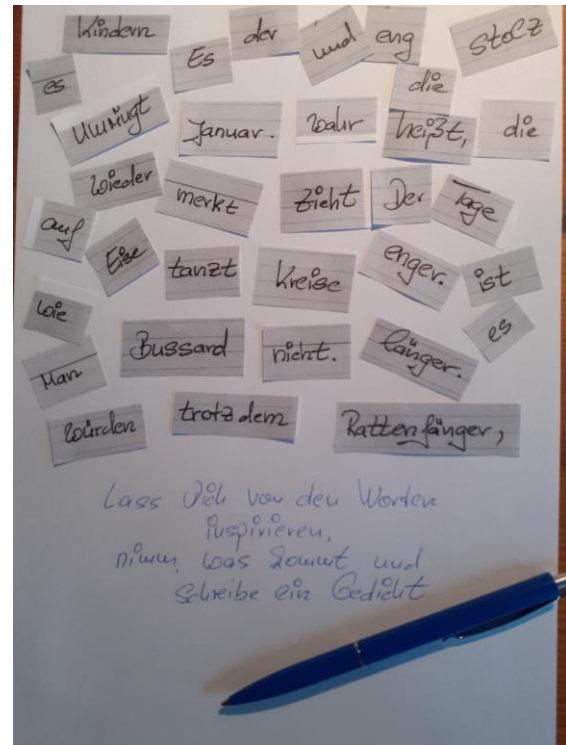 Kindern Es der und eng stolz
es die
Umringt Januar. wahr heißt, die
wieder merkt zieht Der Tage
auf Eise tanzt Kreise enger. ist
wie es
Man Bussard nicht. länger.
würden trotzdem Rattenfänger,
Lass Dich von den Worten
inspirieren,
nimm, was kommt und
schreibe ein Gedicht